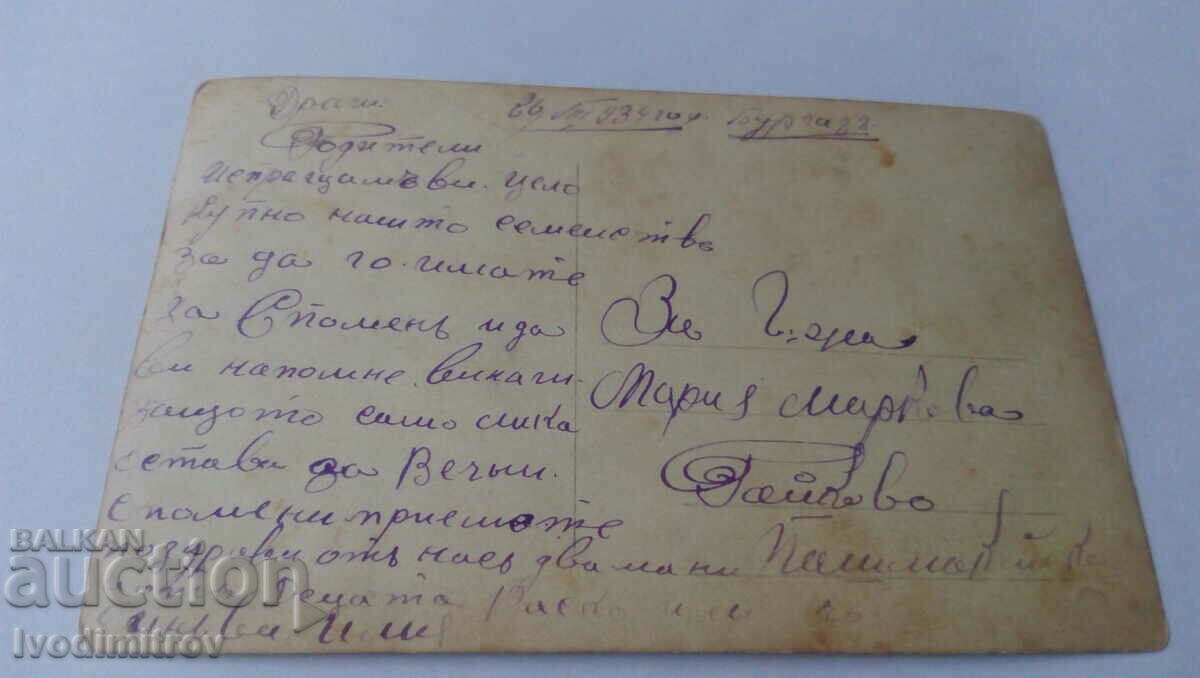 Драги 29/III 934 год. Бургазъ
Родители
Испращамъ ви. цело
купно нашто семейство
за да го имате
за Споменъ и да
ви напомне винаги
защото само лика
остава за Вечни
спомени приемете
поздрави отъ насъ двамани
децата
синъ ви Илия
За Г-жа
Мария Маркова
Райково
Пашмаклийска
BALKAN
auction
Ivodimitrov